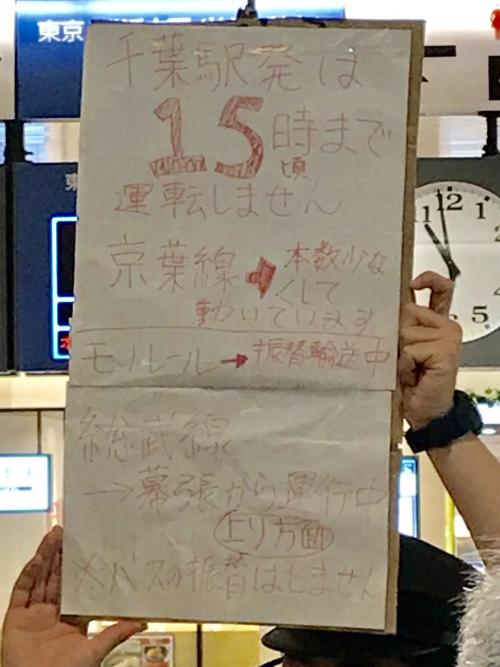 東京
千葉駅発は
15時まで
頃
運転しません
京葉線➡本数少な
くして
動いています
モノレール→振替輸送中
総武線
→幕張から運行中
上り方面
※バスの振替はしません
12
1
2
3
4
5